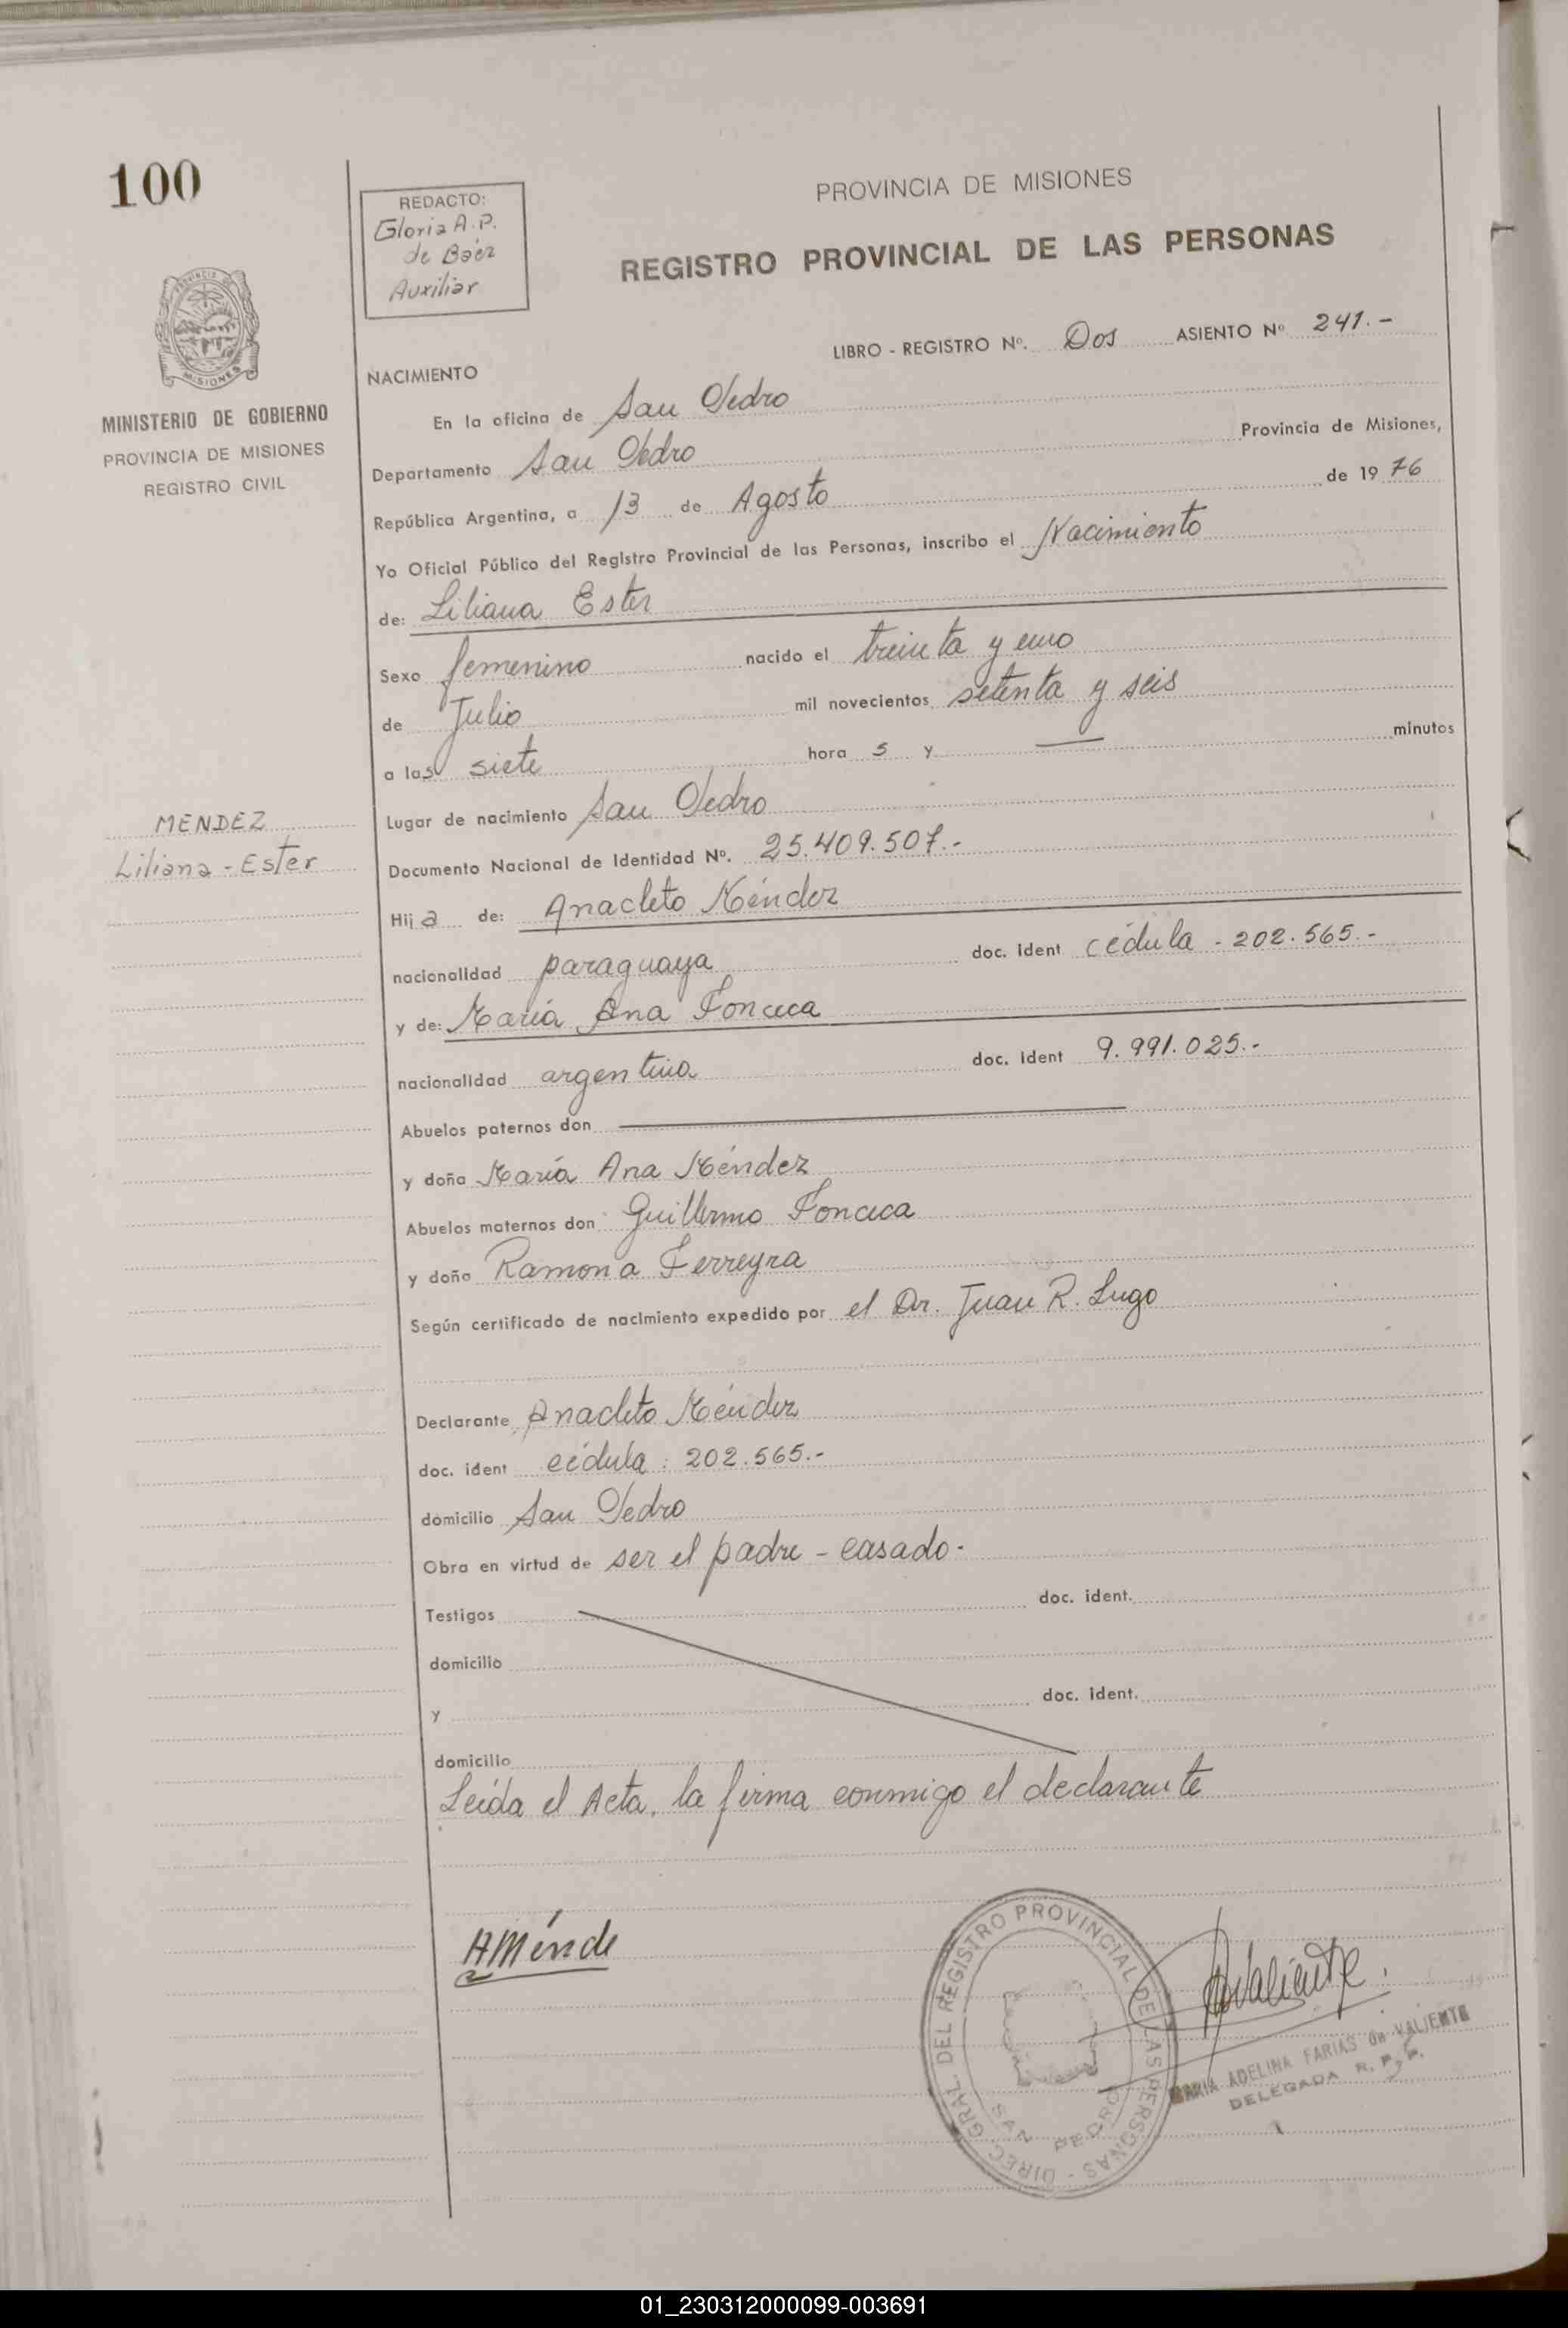 100
REDACTO:
Gloria A. P.
de Báez
Auxiliar
PROVINCIA DE MISIONES
REGISTRO PROVINCIAL DE LAS PERSONAS
MISIONES
MINISTERIO DE GOBIERNO
PROVINCIA DE MISIONES
REGISTRO CIVIL
LIBRO - REGISTRO Nº. Dos ASIENTO Nº 241.-
NACIMIENTO
En la oficina de San Pedro
Departamento San Pedro Provincia de Misiones,
República Argentina, a 13 de Agosto de 19 76
Yo Oficial Público del Registro Provincial de las Personas, inscribo el Nacimiento
de: Liliana Ester
Sexo femenino nacido el treinta y uno
de Julio mil novecientos setenta y seis
a las siete hora s y — minutos
Lugar de nacimiento San Pedro
MENDEZ
Liliana - Ester
Documento Nacional de Identidad Nº. 25.409.507.-
Hij a de: Anacleto Méndez
nacionalidad paraguaya doc. ident cédula - 202.565.-
y de: María Ana Fonceca
nacionalidad argentina doc. ident 9.991.025.-
Abuelos paternos don —
y doña María Ana Méndez
Abuelos maternos don Guillermo Fonceca
y doña Ramona Ferreyra
Según certificado de nacimiento expedido por el Dr. Juan R. Lugo
Declarante Anacleto Méndez
doc. ident cédula : 202.565.-
domicilio San Pedro
Obra en virtud de ser el padre - casado.
Testigos doc. ident.
domicilio
y doc. ident.
domicilio
Leída el Acta, la firma conmigo el declarante
AMénde
DIREC. GRAL DEL REGISTRO PROVINCIAL DE LAS PERSONAS -
SAN PEDRO
Valiente.
MARIA ADELINA FARIAS de VALIENTE
DELEGADA R. P. P.
01_230312000099-003691